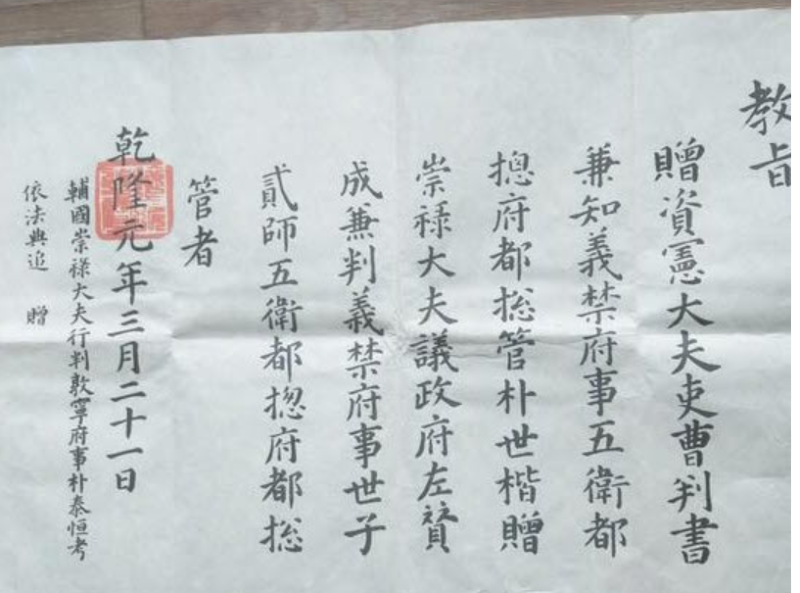 教旨
贈資憲大夫吏曹判書
兼知義禁府事五衛都
摠府都摠管朴世楷贈
崇祿大夫議政府左賛
成兼判義禁府事世子
貳師五衛都摠府都摠
管者
乾隆元年三月二十一日
輔國崇祿大夫行判敦寧府事朴泰恒考
依法典追 贈